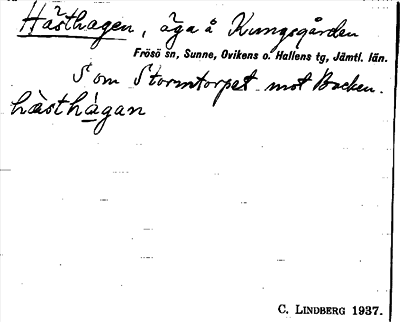 Hästhagen, äga å Kungsgården
Frösö sn, Sunne, Ovikens o. Hallens tg, Jämtl. län.
S om Stormtorpet mot Backen.
hästhàgan
C. LINDBERG 1937.